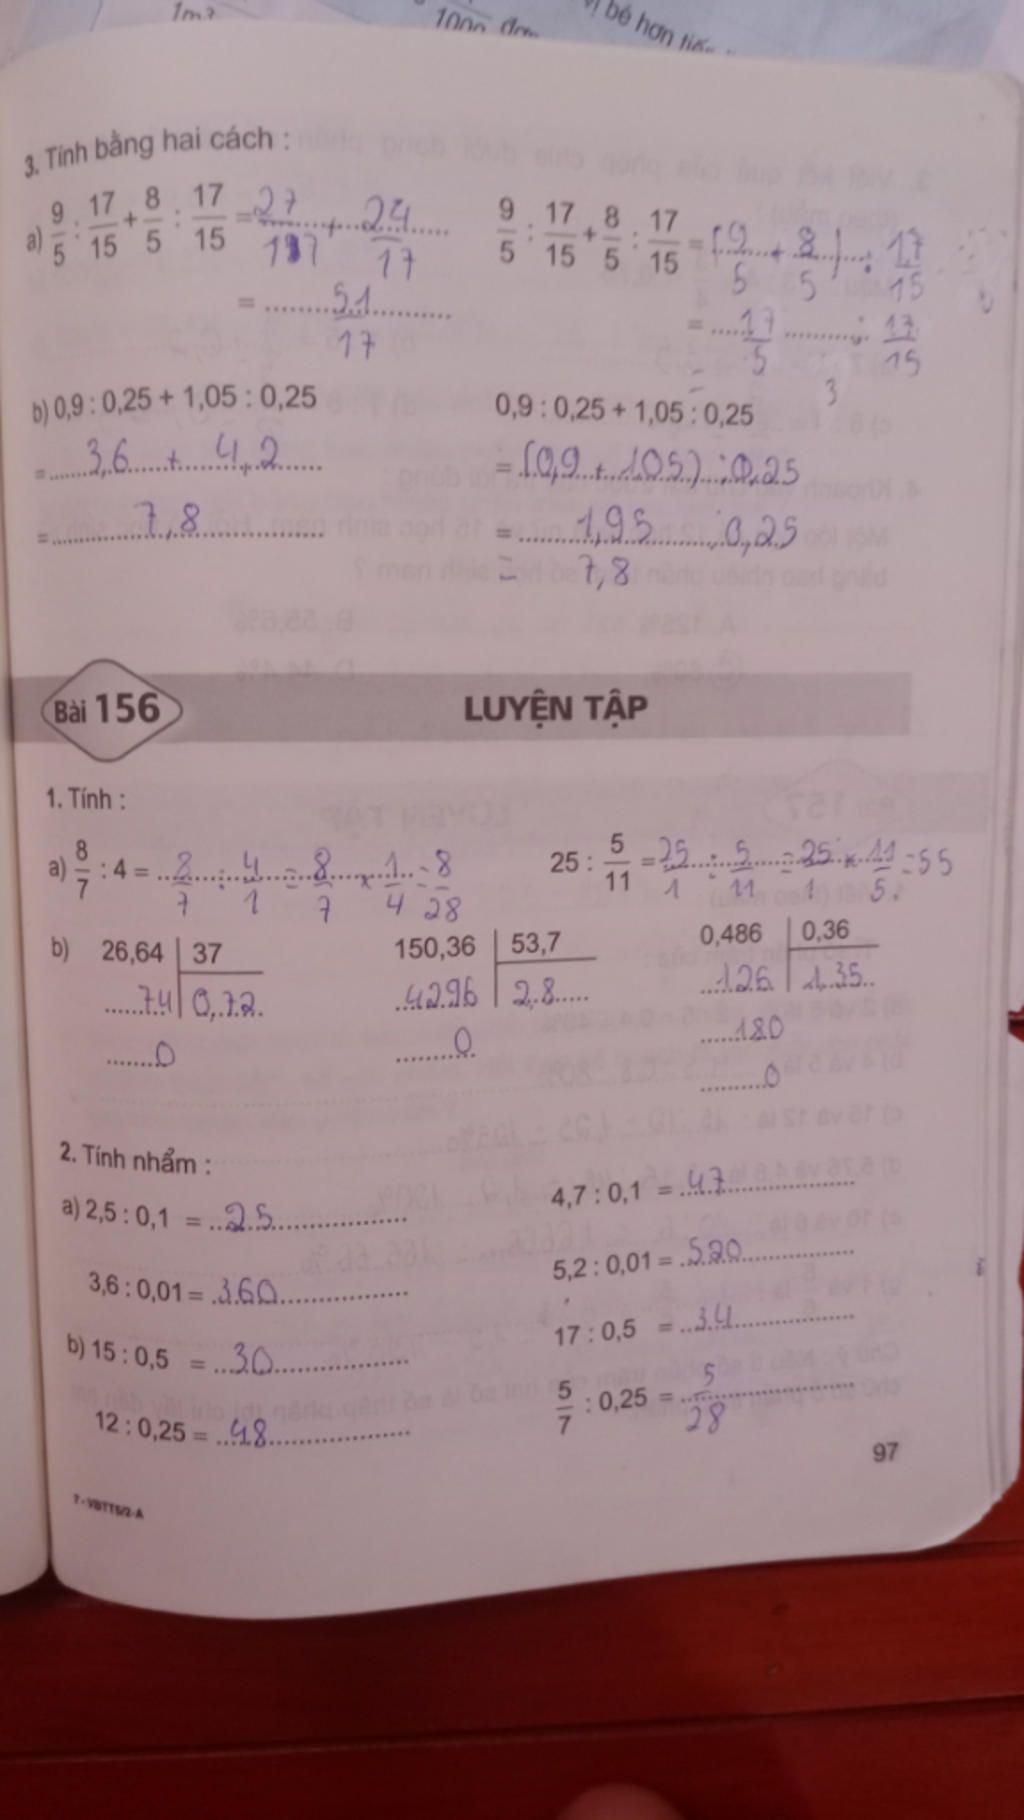 1m³
1000 đơn
vị bé hơn tiếp
3. Tính bằng hai cách :
a) 9/5 : 17/15 + 8/5 : 17/15 = 27/17 + 24/17
= 51/17
9/5 : 17/15 + 8/5 : 17/15 = (9/5 + 8/5) : 17/15
= 17/5 : 17/15
= 3
b) 0,9 : 0,25 + 1,05 : 0,25
= 3,6 + 4,2
= 7,8
0,9 : 0,25 + 1,05 : 0,25
= (0,9 + 105) : 0,25
= 1,95 : 0,25
= 7,8
Bài 156 LUYỆN TẬP
1. Tính :
a) 8/7 : 4 = 8/7 : 4/1 = 8/7 × 1/4 = 8/28
25 : 5/11 = 25/1 : 5/11 = 25/1 × 11/5 = 55
b) 26,64 | 37
74 | 0,72
0
150,36 | 53,7
4296 | 2,8
0
0,486 | 0,36
126 | 1,35
180
0
2. Tính nhẩm :
a) 2,5 : 0,1 = 25
4,7 : 0,1 = 47
3,6 : 0,01 = 360
5,2 : 0,01 = 520
b) 15 : 0,5 = 30
17 : 0,5 = 34
12 : 0,25 = 48
5/7 : 0,25 = 5/28
97
7-VBTT5/2-A